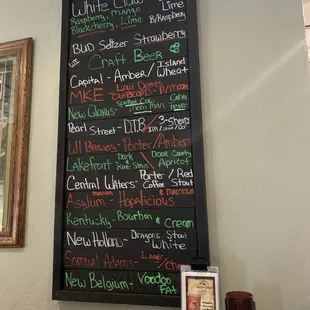 White Claw - Lime
Raspberry, Mango B/Raspberry
Blackcherry, Lime
BUD Seltzer Strawberry
Craft Beer
Capital - Amber / Island Wheat
MKE - Loui Demis
OUTBOARD
New Glarus - Spotted Cow
Moon Man
Pearl Street - D.T.B. / 3-Sheeps
IPA
WI Brewery - Porter/Amber
Lakefront - Dark / Door County
Stein Apricot
Central Waters - Porter / Red
Coffee Stout
Asylum - Hopalicious
Kentucky - Bourbon & Cream
New Holland - Dragons Stout
White
Samual Adams - Lager
New Belgium - Voodoo
Fat